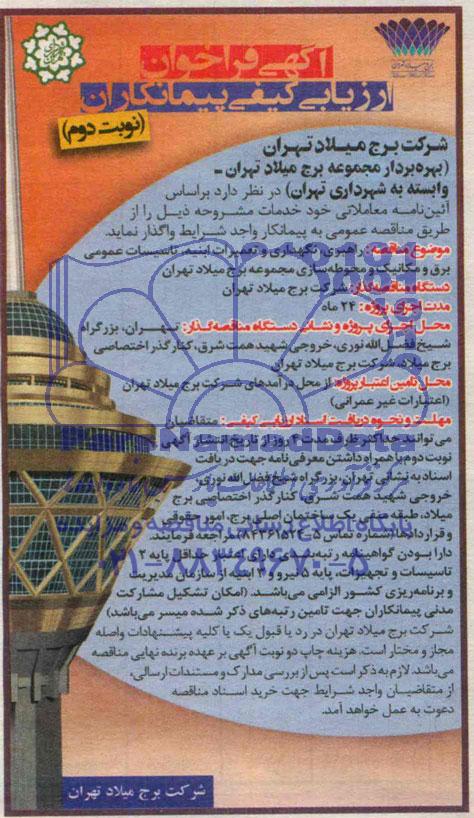 آگهی فراخوان
ارزیابی کیفی پیمانکاران
(نوبت دوم)
شرکت برج میلاد تهران
(بهره‌بردار مجموعه برج میلاد تهران -
وابسته به شهرداری تهران) در نظر دارد براساس
آئین‌نامه معاملاتی خود خدمات مشروحه ذیل را از
طریق مناقصه عمومی به پیمانکار واجد شرایط واگذار نماید.
موضوع مناقصه: راهبری، نگهداری و تعمیرات ابنیه، تاسیسات عمومی
برق و مکانیک و محوطه‌سازی مجموعه برج میلاد تهران
دستگاه مناقصه‌گذار: شرکت برج میلاد تهران
مدت اجرای پروژه: ۲۴ ماه
محل اجرای پروژه و نشانی دستگاه مناقصه‌گذار: تهران، بزرگراه
شیخ فضل‌الله نوری، خروجی شهید همت شرق، کنارگذر اختصاصی
برج میلاد، شرکت برج میلاد تهران
محل تامین اعتبار پروژه: از محل درآمدهای شرکت برج میلاد تهران
(اعتبارات غیر عمرانی)
مهلت و نحوه دریافت اسناد ارزیابی کیفی: متقاضیان
می‌توانند حداکثر ظرف مدت ۴ روز از تاریخ انتشار آگهی
نوبت دوم با همراه داشتن معرفی‌نامه جهت دریافت
اسناد به نشانی تهران، بزرگراه شیخ فضل‌الله نوری،
خروجی شهید همت شرق، کنارگذر اختصاصی برج
میلاد، طبقه منفی یک ساختمان اصلی برج، امور حقوقی
و قراردادها (شماره تماس ۵-۸۴۳۶۱۵۲۴) مراجعه فرمایند.
دارا بودن گواهینامه رتبه‌بندی دارای اعتبار حداقل پایه ۲
تاسیسات و تجهیزات، پایه ۵ نیرو و ۴ ابنیه از سازمان مدیریت
و برنامه‌ریزی کشور الزامی می‌باشد. (امکان تشکیل مشارکت
مدنی پیمانکاران جهت تامین رتبه‌های ذکر شده میسر می‌باشد)
شرکت برج میلاد تهران در رد یا قبول یک یا کلیه پیشنهادات واصله
مجاز و مختار است. هزینه چاپ دو نوبت آگهی بر عهده برنده نهایی مناقصه
می‌باشد. لازم به ذکر است پس از بررسی مدارک و مستندات ارسالی،
از متقاضیان واجد شرایط جهت خرید اسناد مناقصه
دعوت به عمل خواهد آمد.
شرکت برج میلاد تهران
پایگاه اطلاع رسانی مناقصه و مزایده
۰۲۱-۸۸۳۴۹۶۷۰-۵